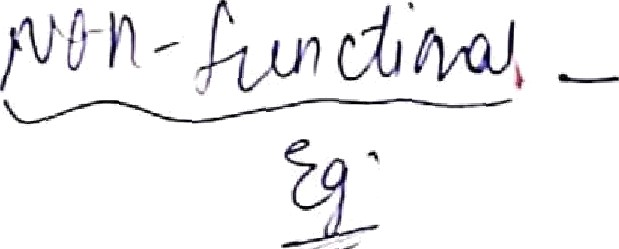 Non-functional -
Eg.